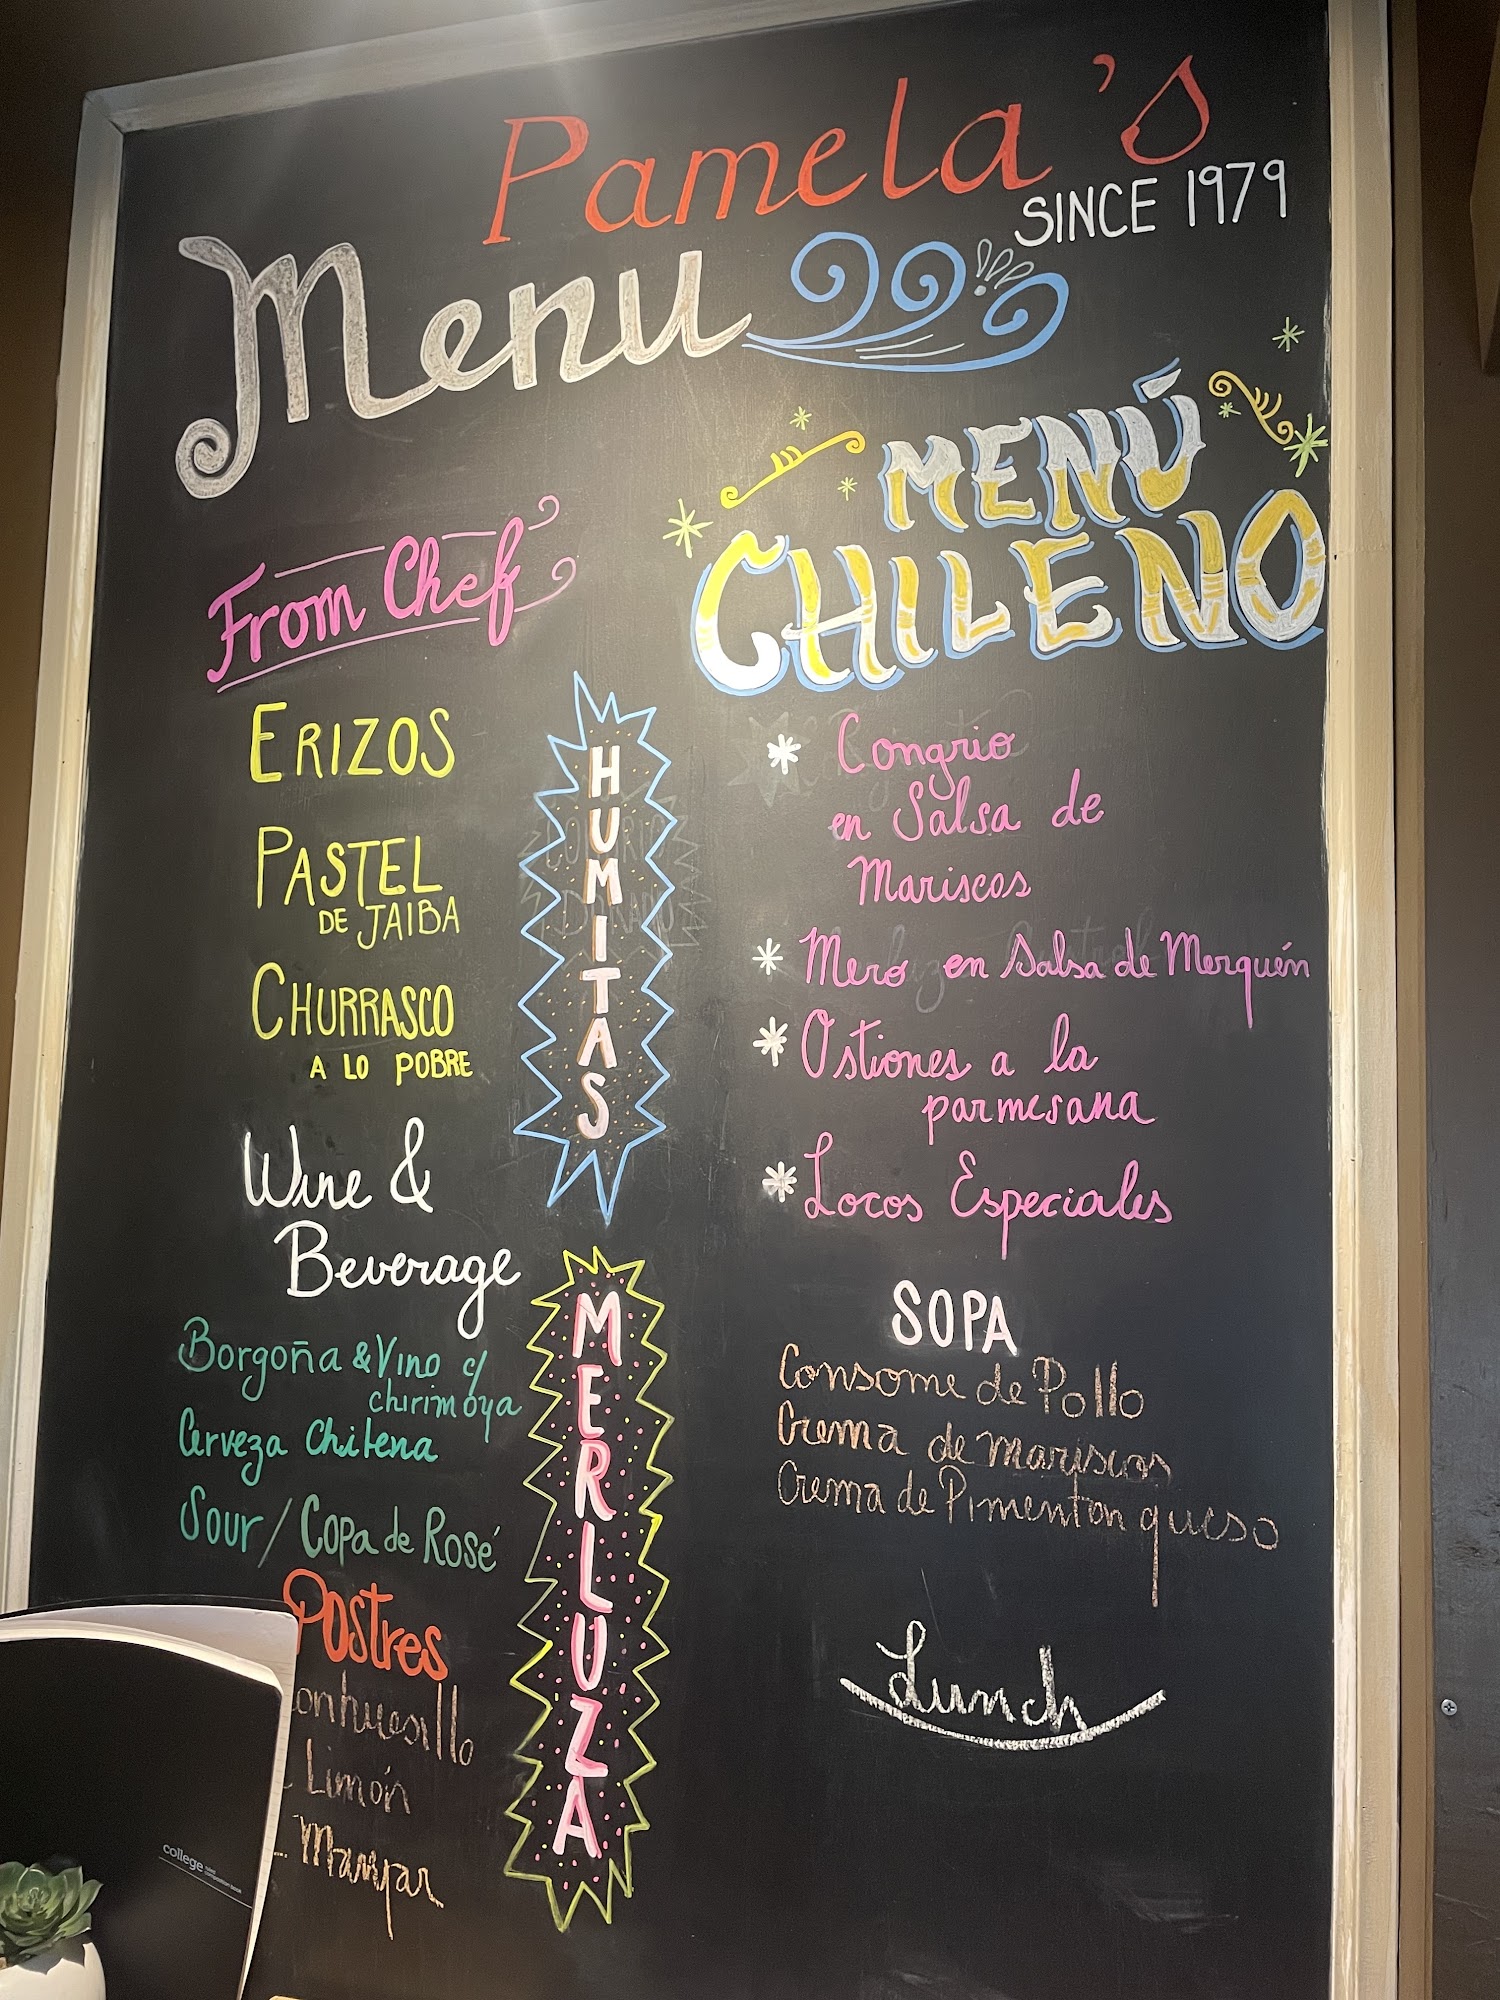 Pamela's
SINCE 1979
Menu
From Chef
ERIZOS
PASTEL
DE JAIBA
CHURRASCO
A LO POBRE
Wine &
Beverage
Borgoña & Vino c/
chirimoya
Cerveza Chilena
Sour / Copa de Rosé
Postres
Limón
Manjar
HUMITAS
MERLUZA
MENÚ
CHILENO
* Congrio
en Salsa de
Mariscos
* Mero en Salsa de Merquén
* Ostiones a la
parmesana
* Locos Especiales
SOPA
Consome de Pollo
Crema de mariscos
Crema de Pimenton queso
Lunch
college